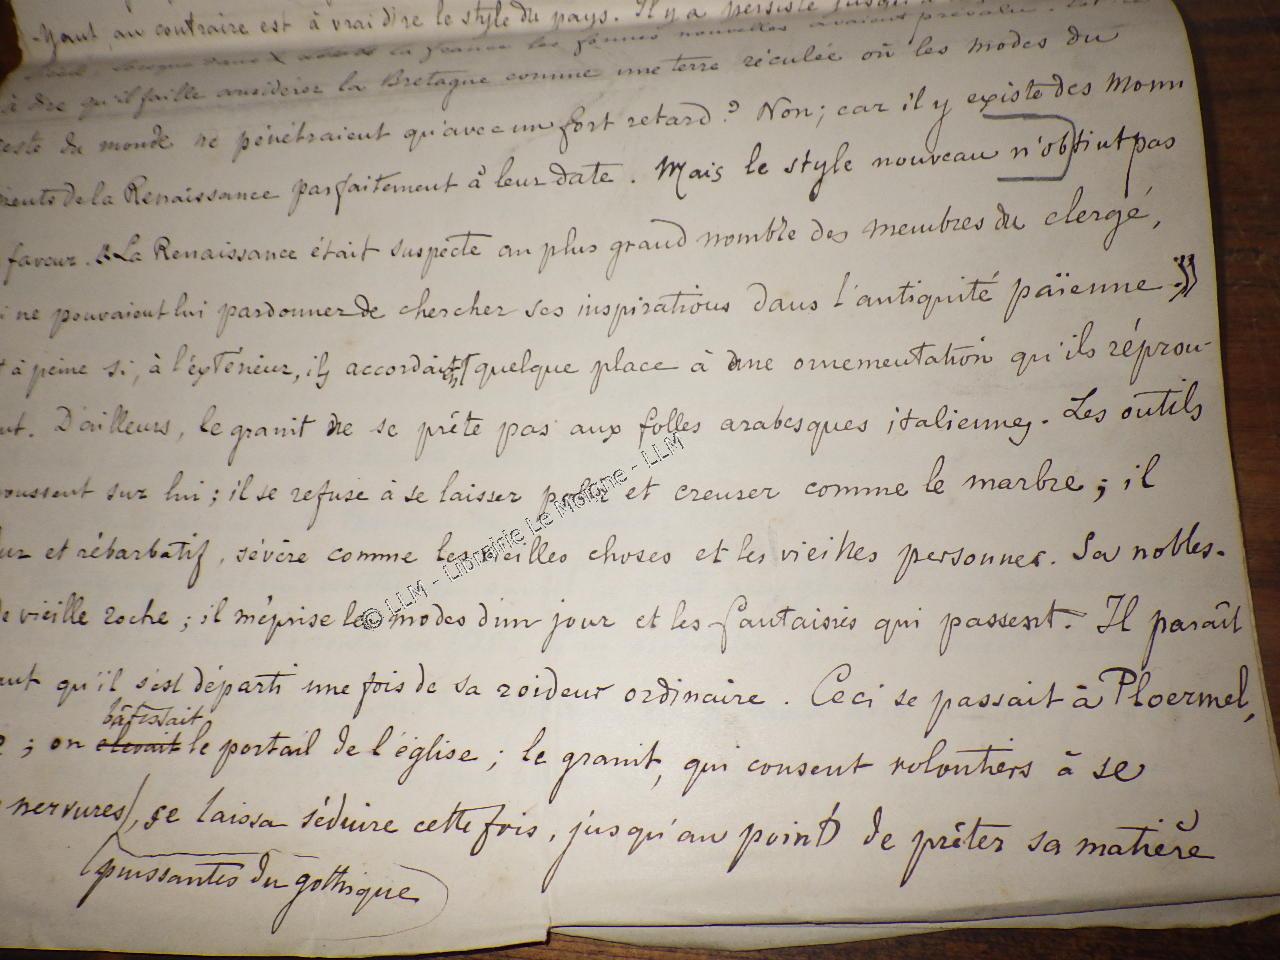 au contraire est à vrai dire le style du pays. Il y a persisté jusqu'à
les formes nouvelles avaient prévalu.
à dire qu'il faille considérer la Bretagne comme une terre réculée où les modes du
este du monde ne pénétraient qu'avec un fort retard? Non; car il y existe des Monu
ments de la Renaissance parfaitement à leur date. Mais le style nouveau n'obtint pas
faveur. « La Renaissance était suspecte au plus grand nombre des membres du clergé,
i ne pouvaient lui pardonner de chercher ses inspirations dans l'antiquité païenne. »
t à peine si, à l'extérieur, ils accordaient quelque place à une ornementation qu'ils réprou-
nt. D'ailleurs, le granit ne se prête pas aux folles arabesques italiennes. Les outils
oussent sur lui; il se refuse à se laisser polir et creuser comme le marbre; il
ur et rébarbatif, sévère comme les vieilles choses et les vieilles personnes. Sa nobles-
de vieille roche; il méprise les modes d'un jour et les fantaisies qui passent. Il paraît
ant qu'il s'est départi une fois de sa roideur ordinaire. Ceci se passait à Ploermel,
bâtissait
; on elevait le portail de l'église; le granit, qui consent volontiers à se
nervures, se laissa séduire cette fois, jusqu'au point de prêter sa matière
puissantes du gothique
© LLM - Librairie Le Moigne - LLM